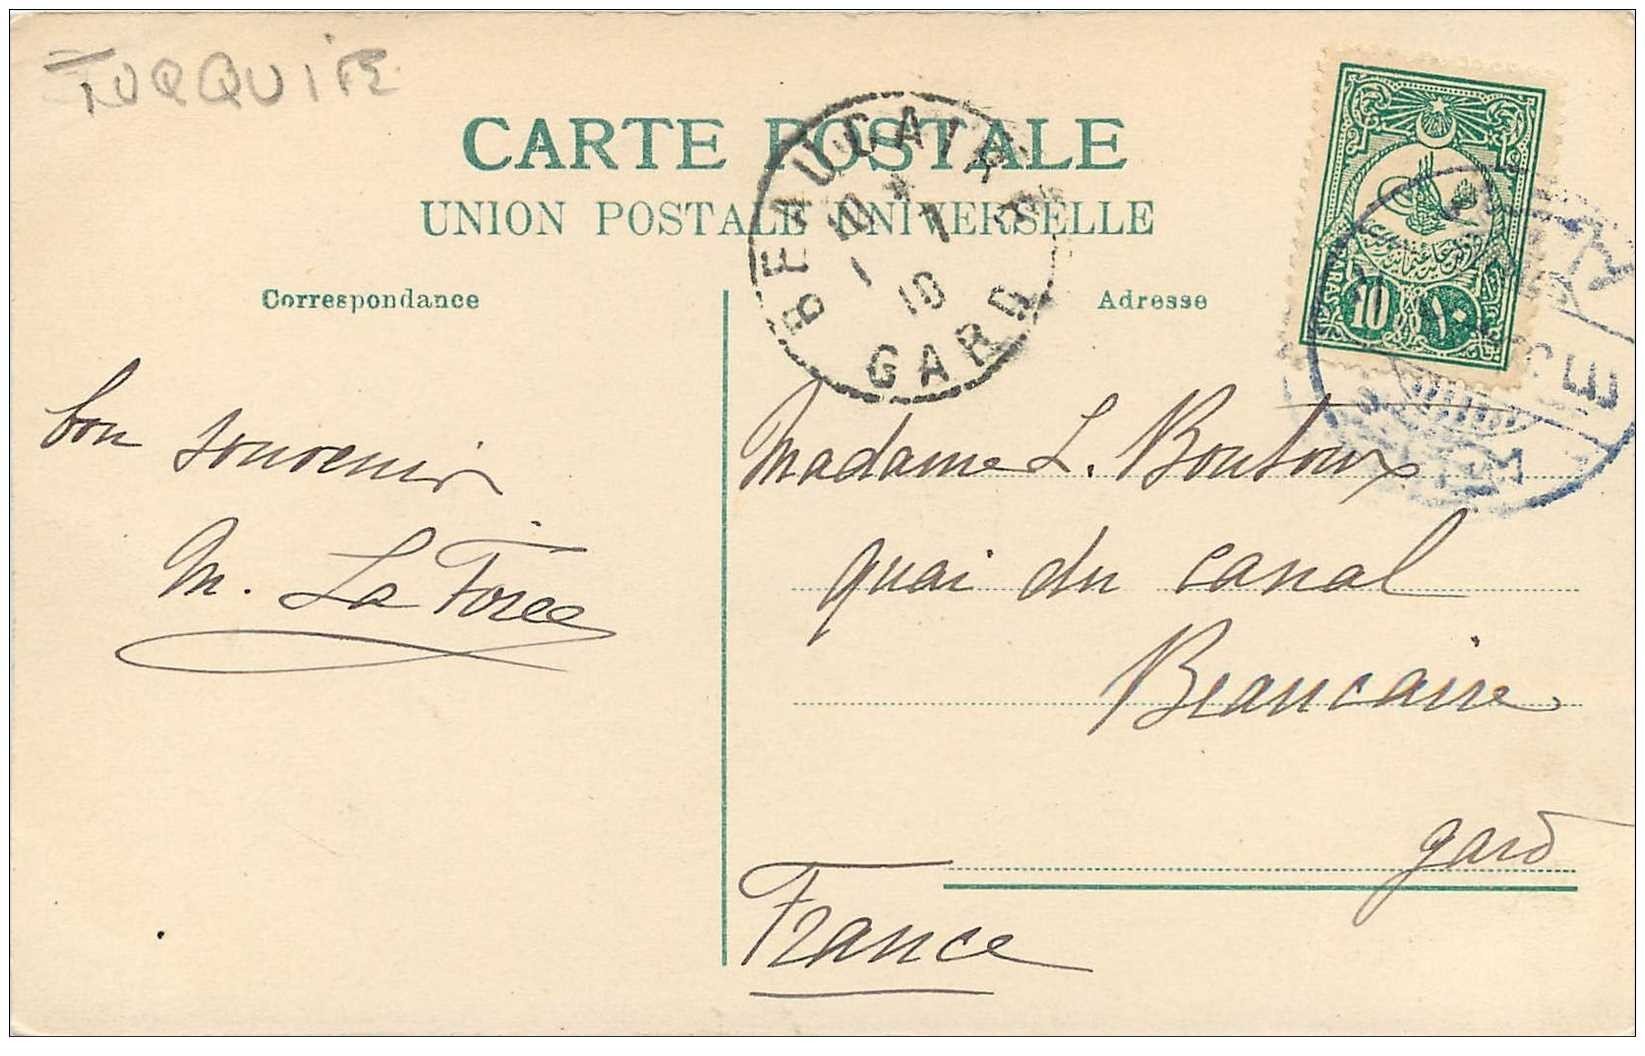 TURQUIE
CARTE POSTALE
UNION POSTALE UNIVERSELLE
BEAUCAIRE
10 *
1 - 1
10
GARD
PARAS
10 ١٠
Correspondance
Adresse
bon souvenir
M. La Force
Madame L. Boutoux
quai du canal
Beaucaire
gard
France